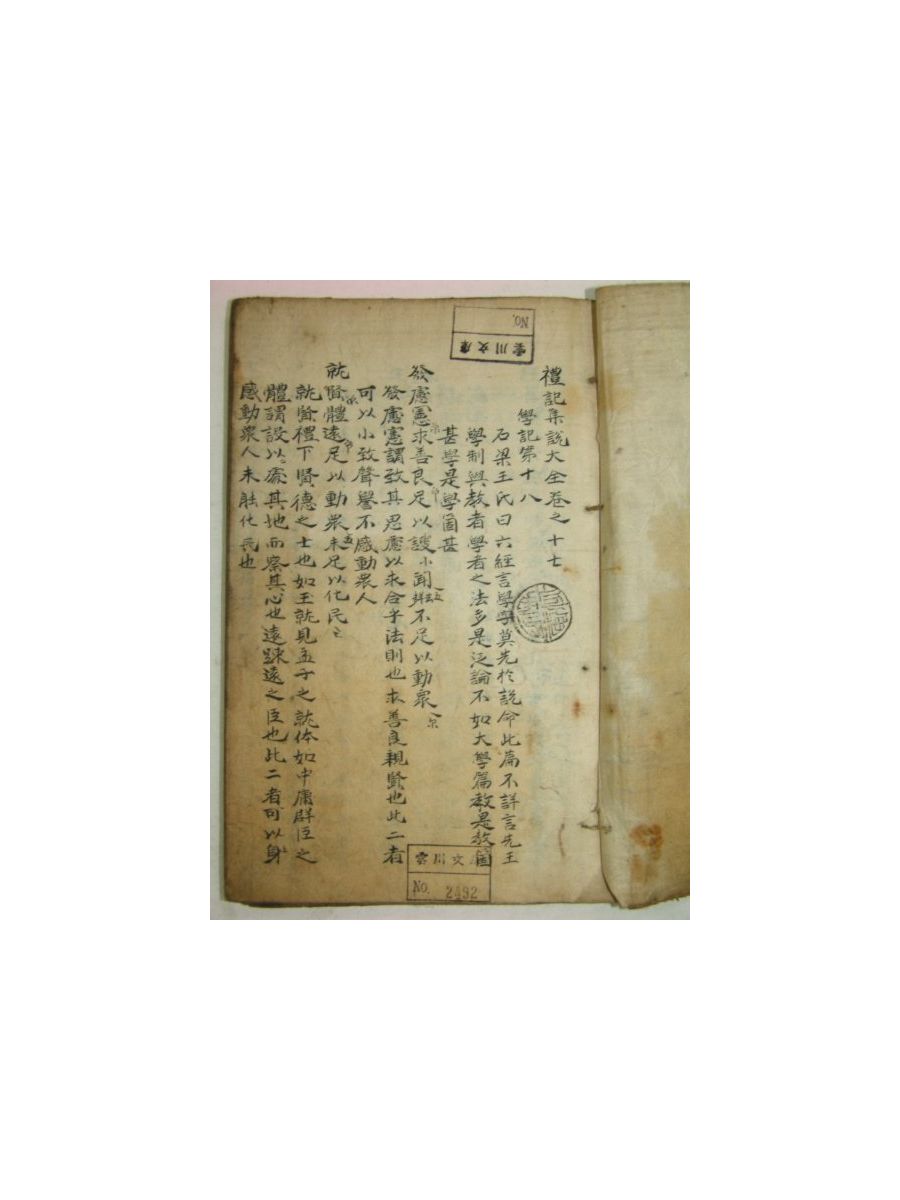 禮記集說大全卷之十七
學記第十八
石梁王氏曰六經言學學莫先於說命此篇不詳言先王
學制與敎者學者之法多是泛論不如大學篇敎是敎箇
甚學是學箇甚
發慮憲求善良足以謏小聞不足以動衆
發慮憲謂致其思慮以求合乎法則也求善良親賢也此二者
可以小致聲譽不感動衆人
就賢體遠足以動衆未足以化民
就賢禮下賢德之士也如王就見孟子之就体如中庸群臣之
體謂設以處其地而察其心也遠踈遠之臣也此二者可以身
感動衆人未能化民也
雲川文庫
No.
雲川文
No. 2492